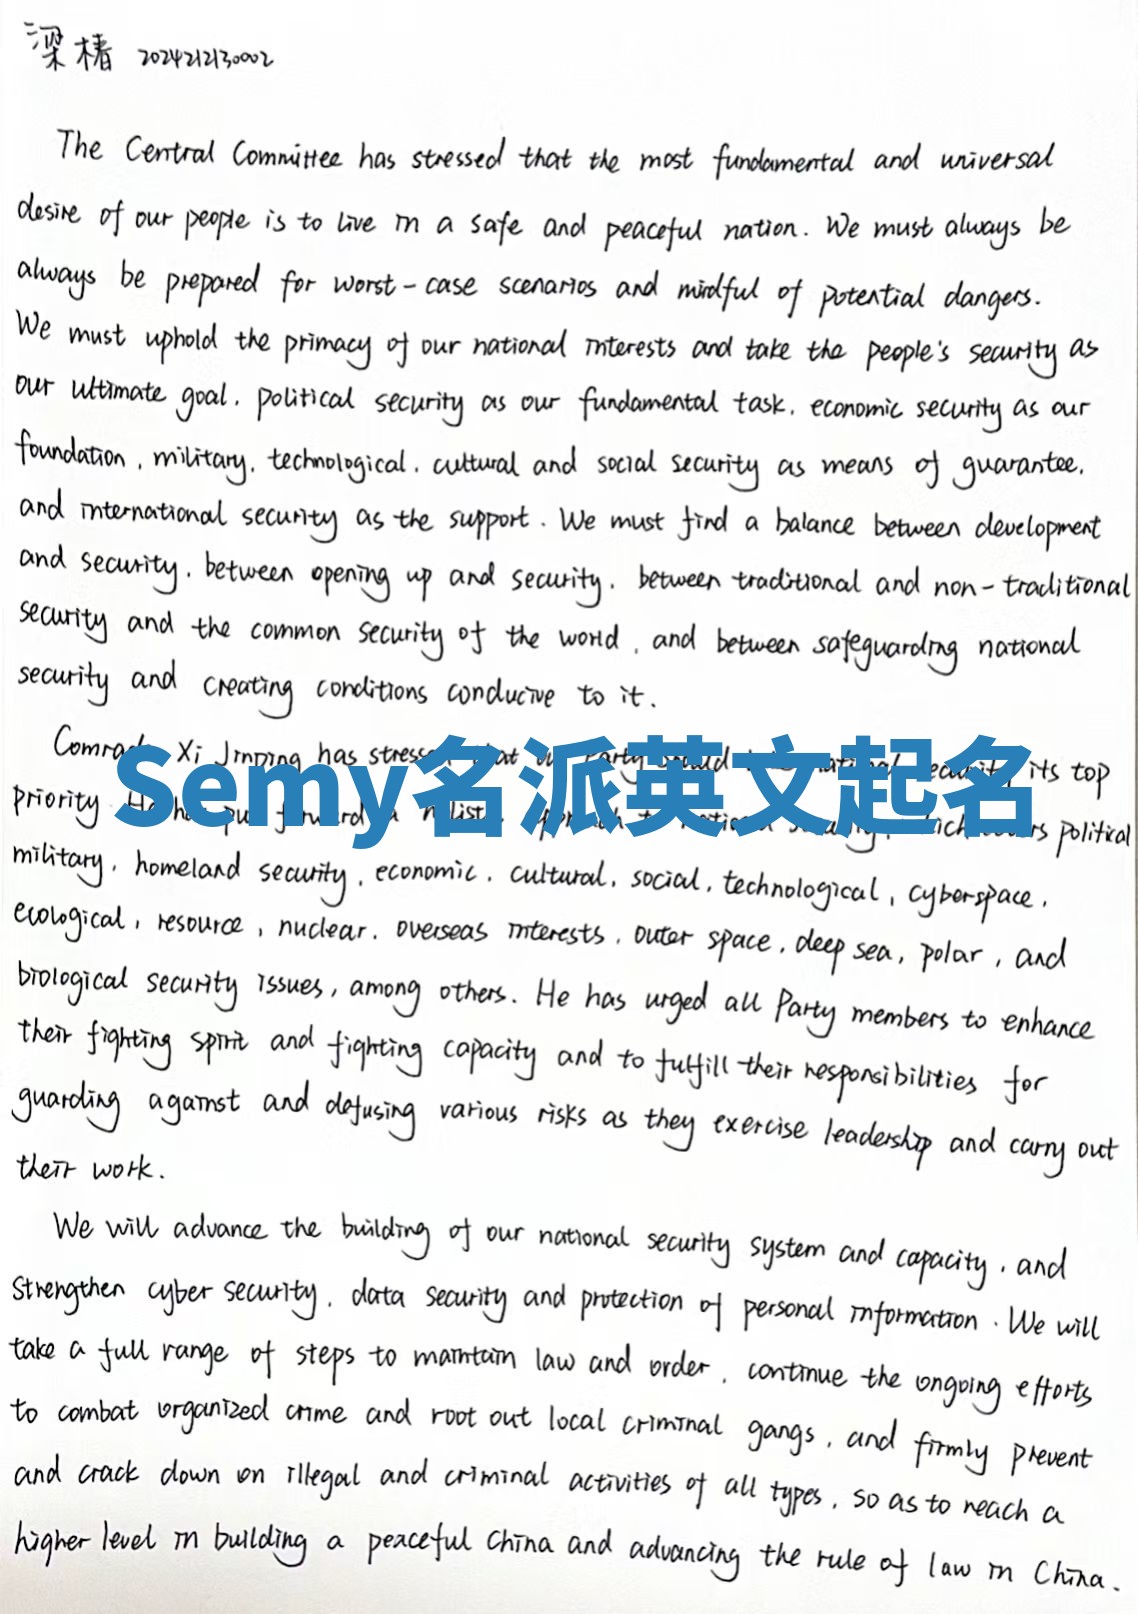 梁椿 2024212130002
The Central Committee has stressed that the most fundamental and universal
desire of our people is to live in a safe and peaceful nation. We must always be
always be prepared for worst-case scenarios and mindful of potential dangers.
We must uphold the primacy of our national interests and take the people's security as
our ultimate goal, political security as our fundamental task, economic security as our
foundation, military, technological, cultural and social security as means of guarantee,
and international security as the support. We must find a balance between development
and security, between opening up and security, between traditional and non-traditional
security and the common security of the world, and between safeguarding national
security and creating conditions conducive to it.
Comrade Xi Jinping has stressed that its top
Semy名派英文起名
priority political
military, homeland security, economic, cultural, social, technological, cyberspace,
ecological, resource, nuclear, overseas interests, outer space, deep sea, polar, and
biological security issues, among others. He has urged all Party members to enhance
their fighting spirit and fighting capacity and to fulfill their responsibilities for
guarding against and defusing various risks as they exercise leadership and carry out
their work.
We will advance the building of our national security system and capacity, and
strengthen cyber security, data security and protection of personal information. We will
take a full range of steps to maintain law and order, continue the ongoing efforts
to combat organized crime and root out local criminal gangs, and firmly prevent
and crack down on illegal and criminal activities of all types, so as to reach a
higher level in building a peaceful China and advancing the rule of law in China.